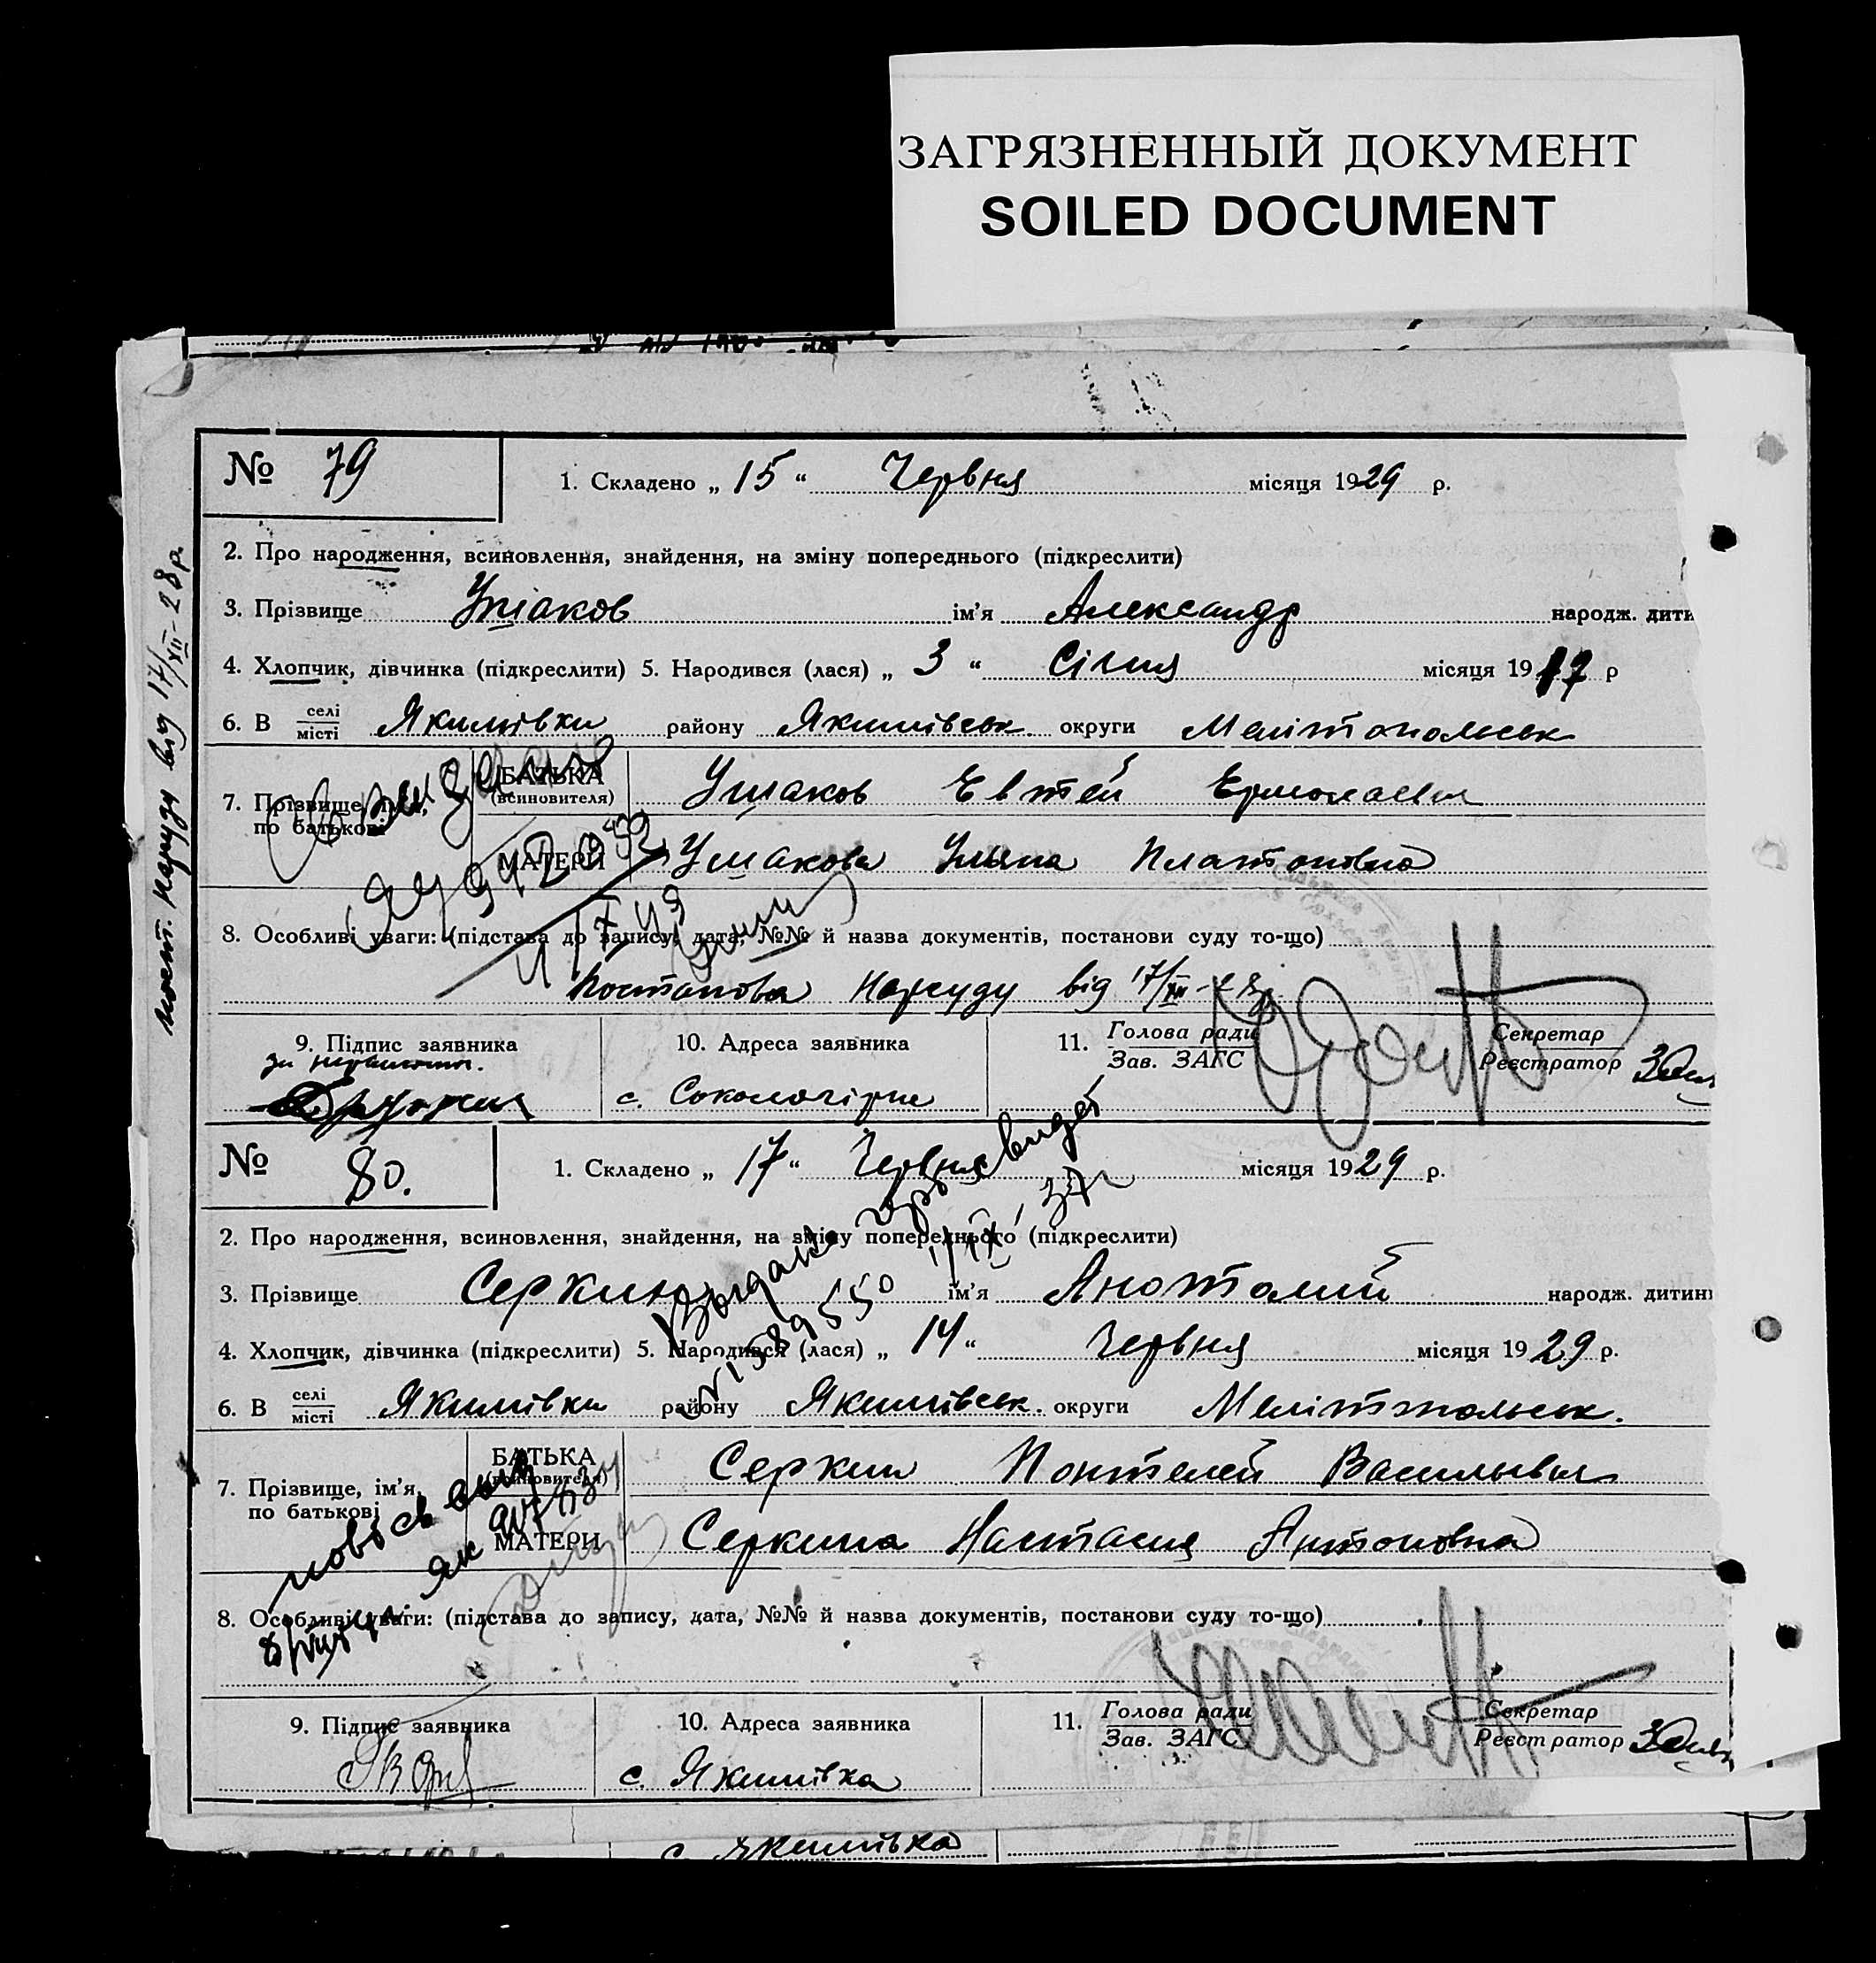 ЗАГРЯЗНЕННЫЙ ДОКУМЕНТ
SOILED DOCUMENT
№ 79
1. Складено „ 15 “ Червня місяця 1929 р.
2. Про народження, всиновлення, знайдення, на зміну попереднього (підкреслити)
3. Прізвище Ушаков ім’я Александр народж. дити
4. Хлопчик, дівчинка (підкреслити) 5. Народився (лася) „ 3 “ Січня місяця 1917 р
6. В селі/місті Якимівки району Якимівськ. округи Мелітопольськ
7. Прізвище, ім’я, по батькові
БАТЬКА (всиновителя) Ушаков Евтей Ермолаевич
МАТЕРИ Ушакова Ульяна Платоновна
8. Особливі уваги: (підстава до запису, дата, №№ й назва документів, постанови суду то-що)
Постанова Нарсуду від 17/XII-28р.
9. Підпис заявника
10. Адреса заявника
с. Сокологірне
11. Голова ради
Зав. ЗАГС
Секретар
Реєстратор
Пост. Нарсуду від 17/XII-28р.
№ 80.
1. Складено „ 17 “ Червня місяця 1929 р.
2. Про народження, всиновлення, знайдення, на зміну попереднього (підкреслити)
3. Прізвище Серкин ім’я Анотолий народж. дитин
4. Хлопчик, дівчинка (підкреслити) 5. Народився (лася) „ 14 “ Червня місяця 1929 р.
6. В селі/місті Якимівки району Якимівськ. округи Мелітопольськ.
7. Прізвище, ім’я, по батькові
БАТЬКА (всиновителя) Серкин Понтелей Васильевич
МАТЕРИ Серкина Настасия Антоновна
8. Особливі уваги: (підстава до запису, дата, №№ й назва документів, постанови суду то-що)
9. Підпис заявника
10. Адреса заявника
с. Якимівка
11. Голова ради
Зав. ЗАГС
Секретар
Реєстратор
с. Якимівка